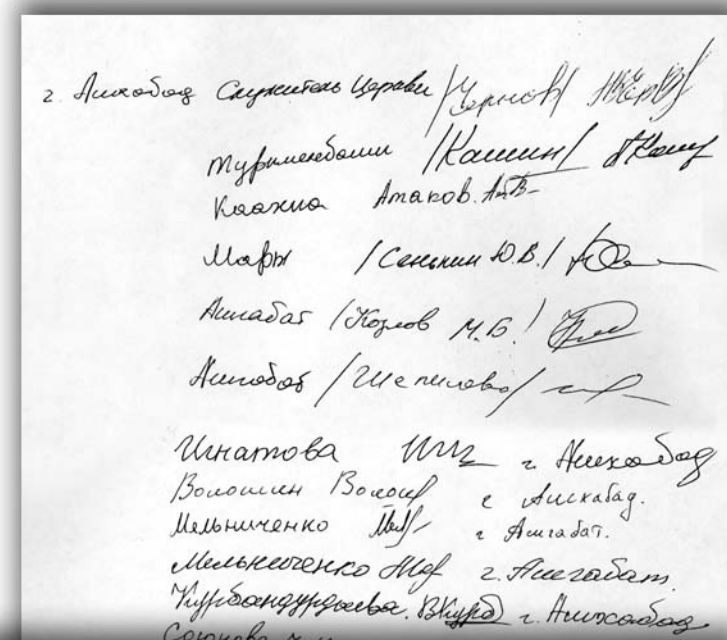 г. Ашхабад Служитель Церкви /Чернов/
Туркменбаши /Кашин/
Каахка Атаков. А.В.
Мары /Сенькин Ю.В./
Ашгабат /Козлов М.Б./
Ашгабат /Шепилова/
Игнатова г. Ашхабад
Волошин Волош г Ашхабад.
Мельниченко г Ашгабат.
Мельниченко г. Ашгабат.
Курбандурдыева. ВКурб г. Ашхабад